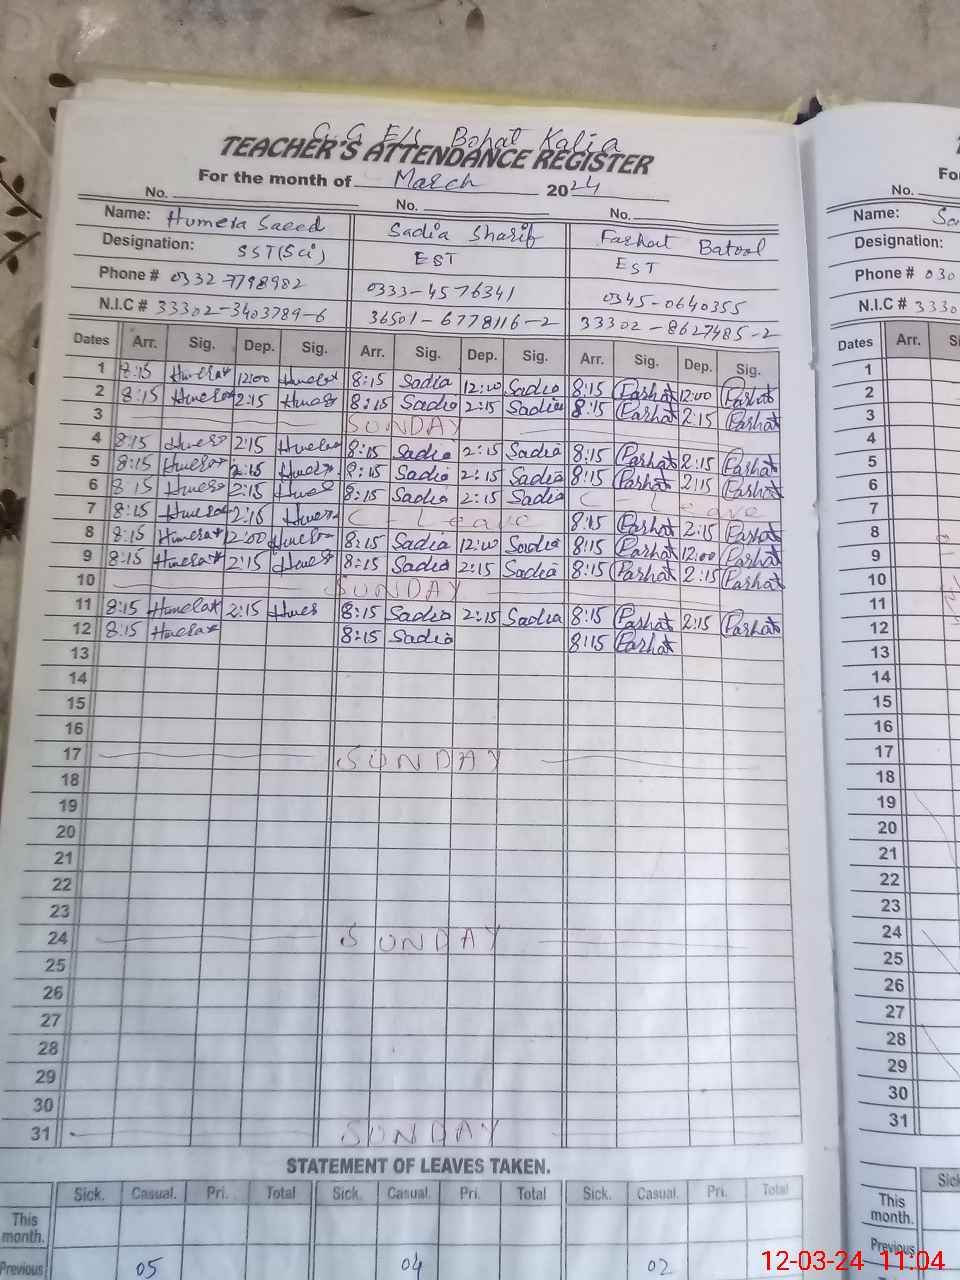 G. G E/S Bohat Kalia
TEACHER'S ATTENDANCE REGISTER
For the month of March 2024
No. No. No.
Name: Humera Saeed Sadia Sharif Farhat Batool
Designation: SST(Sci) EST EST
Phone # 0332 7798982 0333-4576341 0345-0640355
N.I.C # 33302-3403789-6 36501-6778116-2 33302-8627485-2
Dates Arr. Sig. Dep. Sig. Arr. Sig. Dep. Sig. Arr. Sig. Dep. Sig.
1 8:15 Humera 12:00 Humera 8:15 Sadia 12:00 Sadia 8:15 Farhat 12:00 Farhat
2 8:15 Humera 2:15 Humera 8:15 Sadia 2:15 Sadia 8:15 Farhat 2:15 Farhat
3 SUNDAY
4 8:15 Humera 2:15 Humera 8:15 Sadia 2:15 Sadia 8:15 Farhat 2:15 Farhat
5 8:15 Humera 2:15 Humera 8:15 Sadia 2:15 Sadia 8:15 Farhat 2:15 Farhat
6 8:15 Humera 2:15 Humera 8:15 Sadia 2:15 Sadia C - Leave
7 8:15 Humera 2:15 Humera C - Leave 8:15 Farhat 2:15 Farhat
8 8:15 Humera 12:00 Humera 8:15 Sadia 12:00 Sadia 8:15 Farhat 12:00 Farhat
9 8:15 Humera 2:15 Humera 8:15 Sadia 2:15 Sadia 8:15 Farhat 2:15 Farhat
10 SUNDAY
11 8:15 Humera 2:15 Humera 8:15 Sadia 2:15 Sadia 8:15 Farhat 2:15 Farhat
12 8:15 Humera 8:15 Sadia 8:15 Farhat
13
14
15
16
17 SUNDAY
18
19
20
21
22
23
24 SUNDAY
25
26
27
28
29
30
31 SUNDAY
STATEMENT OF LEAVES TAKEN.
Sick. Casual. Pri. Total Sick. Casual. Pri. Total Sick. Casual. Pri. Total
This month.
Previous 05 04 02
No.
Name:
Designation:
Phone # 030
N.I.C # 3330
Dates Arr.
1
2
3
4
5
6
7
8
9
10
11
12
13
14
15
16
17
18
19
20
21
22
23
24
25
26
27
28
29
30
31
This month.
Previous
12-03-24 11:04